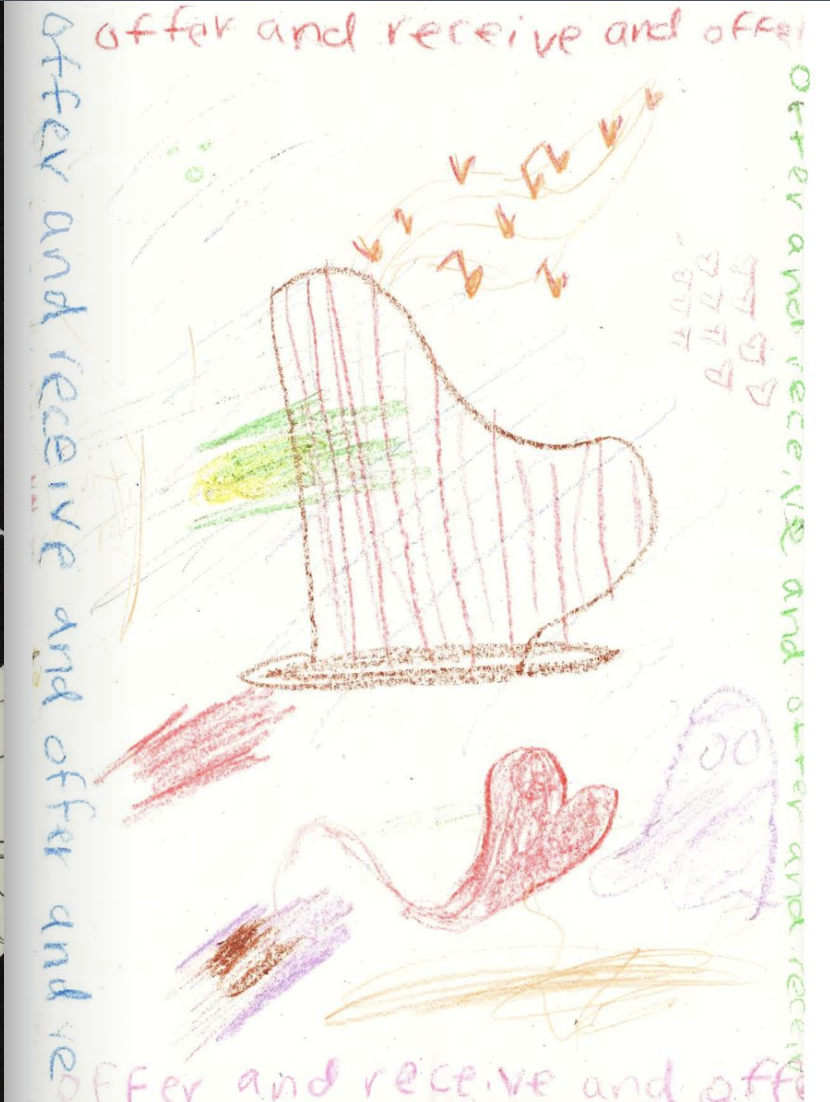 offer and receive and offer
offer and receive and offer and receive
offer and receive and offer and re
offer and receive and offe